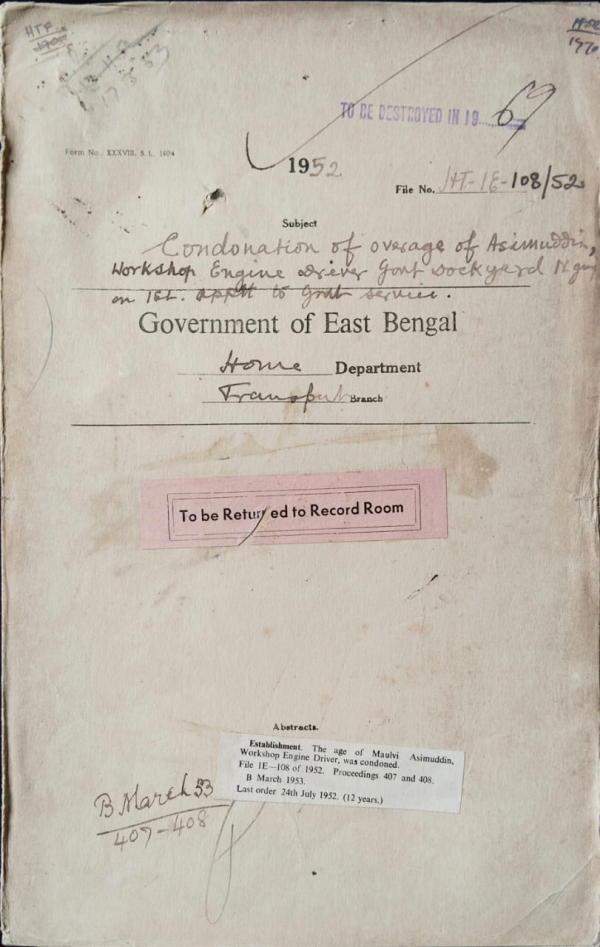 HTF
17.3.53
TO BE DESTROYED IN 19 69
Form No. XXXVIII, S. L. 1604
1952
File No. HT-1E-108/52
Subject
Condonation of overage of Asimuddin,
Workshop Engine driver Govt dockyard N'ganj
on 1st. apptt to Govt service.
Government of East Bengal
Home Department
Transport Branch
To be Returned to Record Room
Abstracts.
Establishment. The age of Maulvi Asimuddin,
Workshop Engine Driver, was condoned.
File 1E—108 of 1952. Proceedings 407 and 408.
B March 1953.
Last order 24th July 1952. (12 years.)
B March 53
407-408